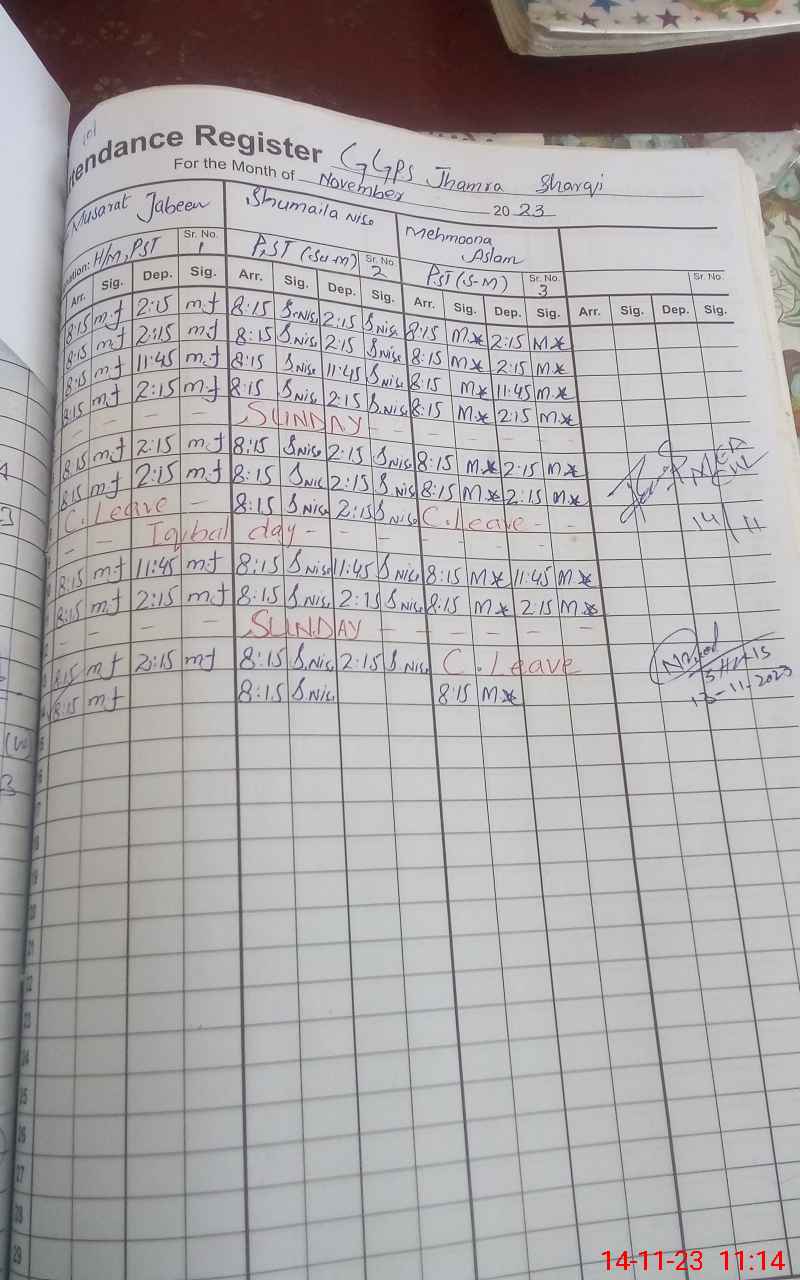 tendance Register GGPS Jhamra Sharqi
For the Month of November 2023
Musarat Jabeen Shumaila Nisa Mehmoona Aslam
ation: H/M, PST Sr. No. 1 PST (Su-M) Sr. No. 2 PST (S-M) Sr. No. 3 Sr. No.
Arr. Sig. Dep. Sig. Arr. Sig. Dep. Sig. Arr. Sig. Dep. Sig. Arr. Sig. Dep. Sig.
8:15 m.f 2:15 m.f 8:15 S.Nisa 2:15 S.Nisa 8:15 M* 2:15 M*
8:15 m.f 2:15 m.f 8:15 S.Nisa 2:15 S.Nisa 8:15 M* 2:15 M*
8:15 m.f 11:45 m.f 8:15 S.Nisa 11:45 S.Nisa 8:15 M* 11:45 M*
8:15 m.f 2:15 m.f 8:15 S.Nisa 2:15 S.Nisa 8:15 M* 2:15 M*
- - - - SUNDAY - - - - -
8:15 m.f 2:15 m.f 8:15 S.Nisa 2:15 S.Nisa 8:15 M* 2:15 M*
8:15 m.f 2:15 m.f 8:15 S.Nisa 2:15 S.Nisa 8:15 M* 2:15 M*
C. Leave - 8:15 S.Nisa 2:15 S.Nisa C. Leave - -
- - Iqbal day - - - - - -
8:15 m.f 11:45 m.f 8:15 S.Nisa 11:45 S.Nisa 8:15 M* 11:45 M*
8:15 m.f 2:15 m.f 8:15 S.Nisa 2:15 S.Nisa 8:15 M* 2:15 M*
- - - - SUNDAY - - - - -
8:15 m.f 2:15 m.f 8:15 S.Nisa 2:15 S.Nisa C. Leave
8:15 m.f 8:15 S.Nisa 8:15 M*
14/11
13-11-2023
16
17
18
19
20
21
22
23
24
25
26
27
28
29
14-11-23 11:14